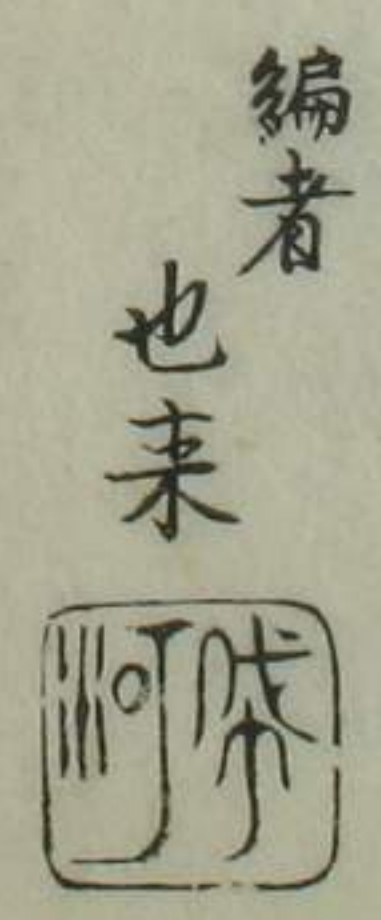 編者
也来